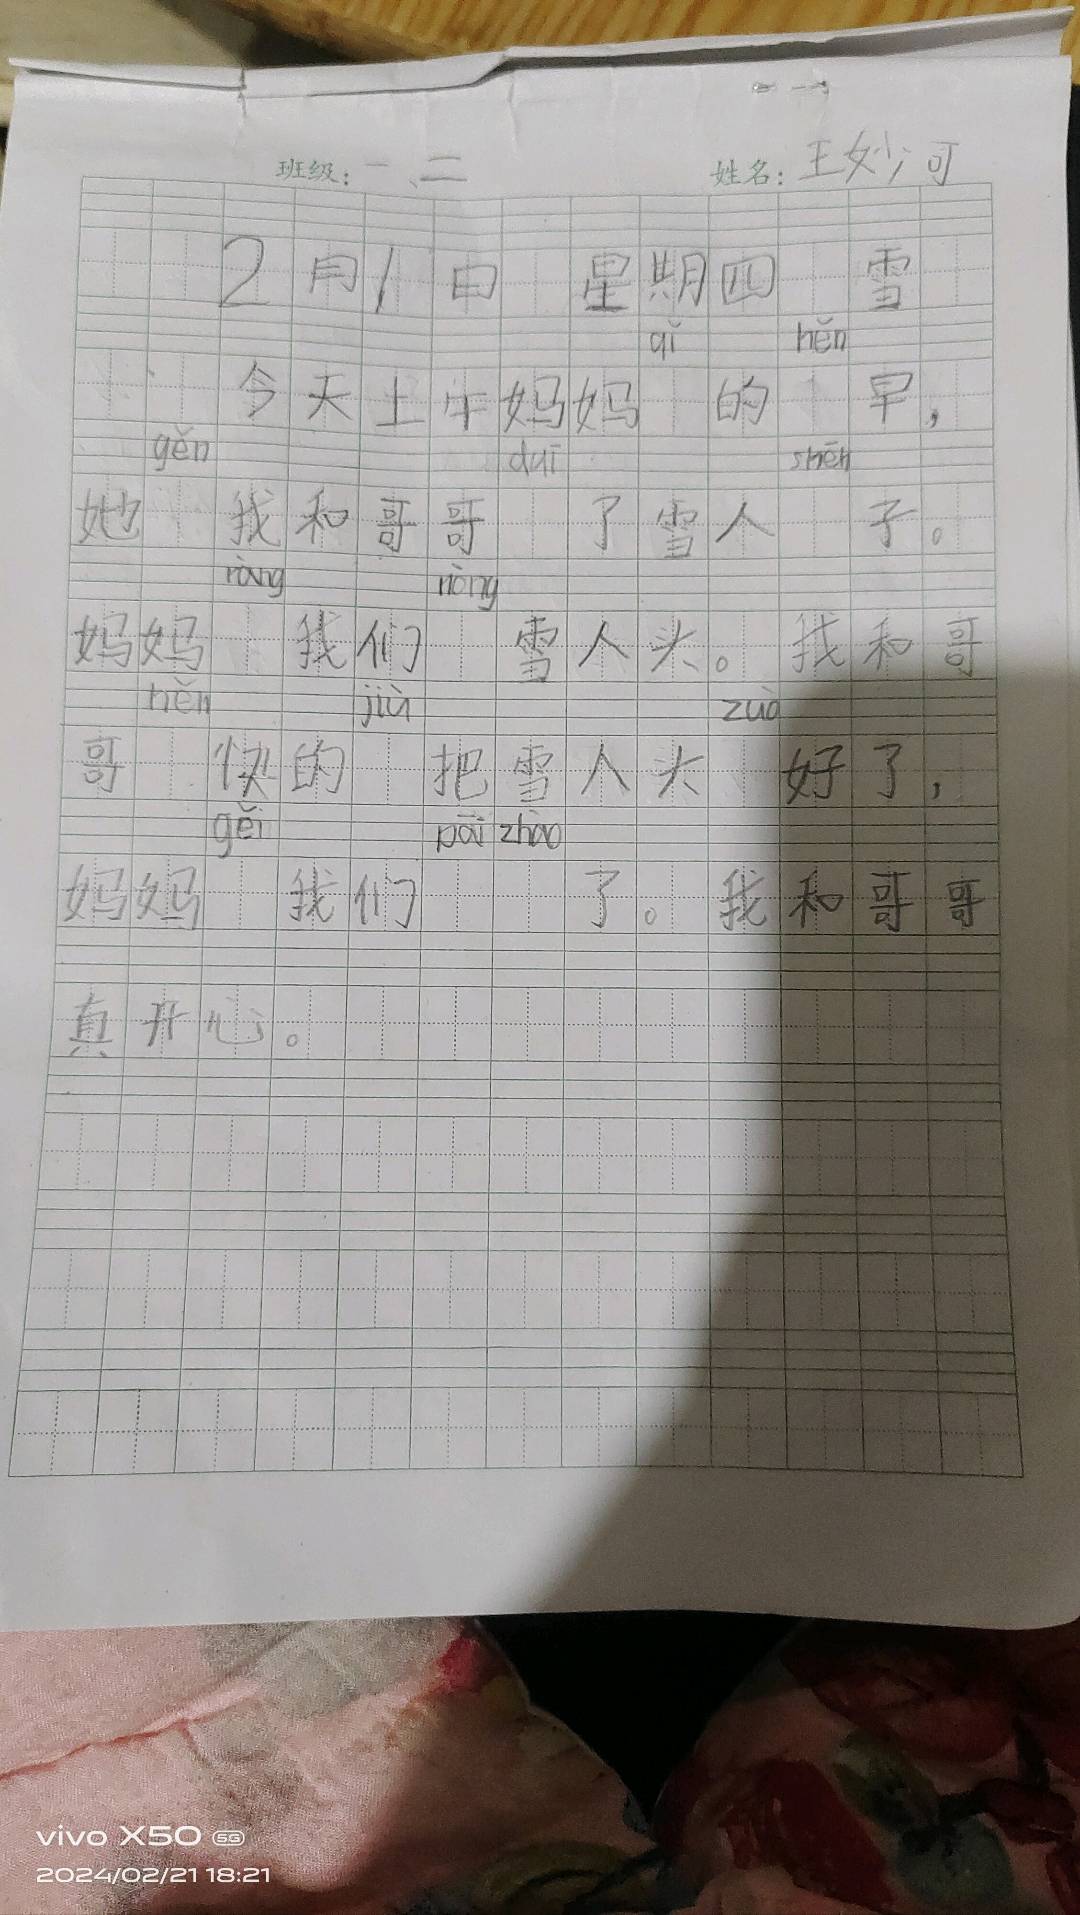 班级：一、二 姓名：王妙可
2月1日 星期四 雪
qǐ hěn
今天上午妈妈 的 早，
gěn duī shēn
她 我和哥哥 了雪人 子。
ràng nòng
妈妈 我们 雪人头。我和哥
hěn jiù zuò
哥 快的 把雪人头 好了，
gěi pāi zhào
妈妈 我们 了。我和哥哥
真开心。
vivo X50 5G
2024/02/21 18:21